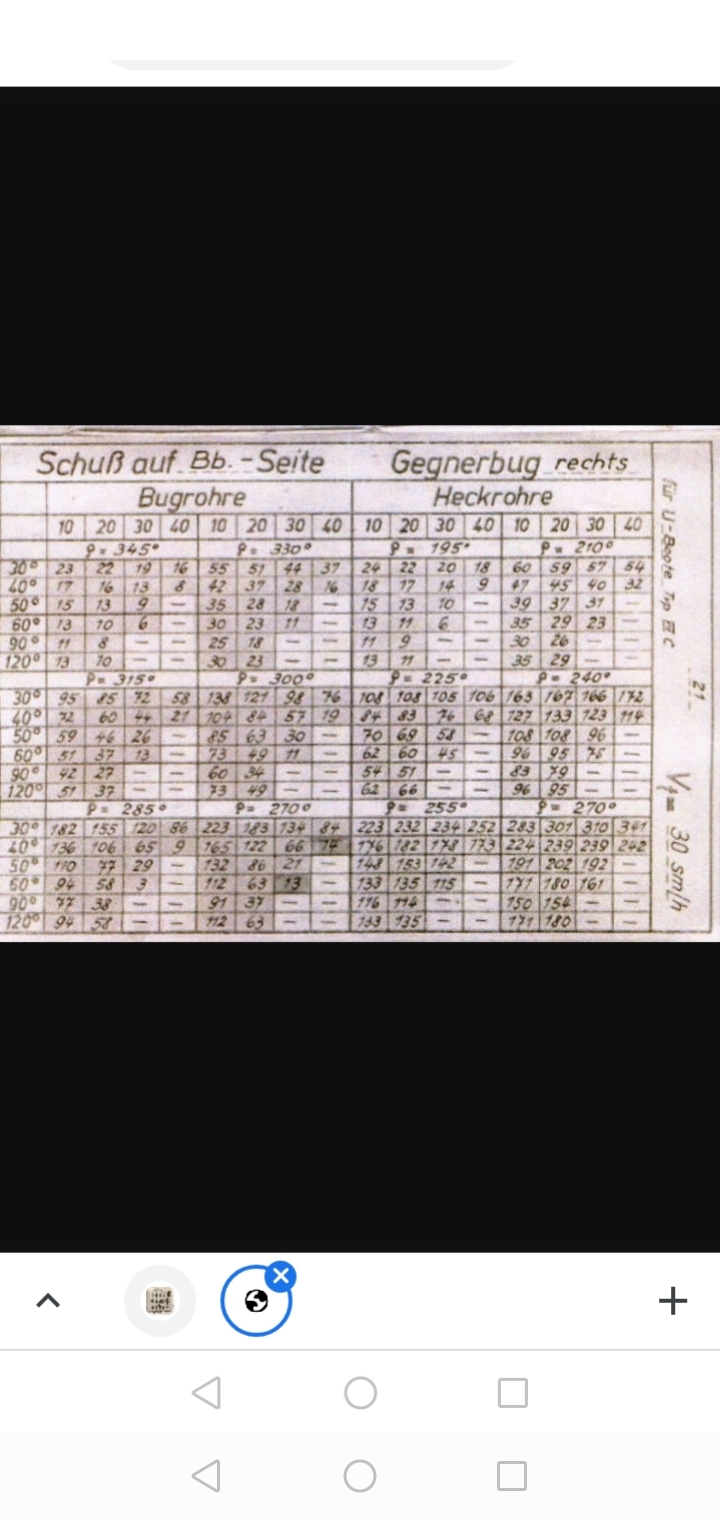 Schuß auf Bb. - Seite Gegnerbug rechts
Bugrohre Heckrohre
10 20 30 40 10 20 30 40 10 20 30 40 10 20 30 40
ρ = 345° ρ = 330° ρ = 195° ρ = 210°
30° 23 22 19 16 55 51 44 37 24 22 20 18 60 59 57 54
40° 17 16 13 8 42 37 28 16 18 17 14 9 47 45 40 32
50° 15 13 9 — 35 28 18 — 15 13 10 — 39 37 31 —
60° 13 10 6 — 30 23 11 — 13 11 6 — 35 29 23 —
90° 11 8 — — 25 18 — — 11 9 — — 30 26 — —
120° 13 10 — — 30 23 — — 13 11 — — 35 29 — —
ρ = 315° ρ = 300° ρ = 225° ρ = 240°
30° 95 85 72 58 138 121 98 76 108 108 105 106 163 167 166 172
40° 72 60 44 21 104 84 57 19 84 83 76 68 127 133 123 114
50° 59 46 26 — 85 63 30 — 70 69 58 — 108 108 96 —
60° 51 37 13 — 73 49 11 — 62 60 45 — 96 95 75 —
90° 42 27 — — 60 34 — — 54 51 — — 83 79 — —
120° 51 37 — — 73 49 — — 62 66 — — 96 95 — —
ρ = 285° ρ = 270° ρ = 255° ρ = 270°
30° 182 155 120 86 223 183 134 84 223 232 234 252 283 301 310 341
40° 136 106 65 9 165 122 66 14 176 182 178 173 224 239 239 242
50° 110 77 29 — 132 86 21 — 148 153 142 — 191 202 192 —
60° 94 58 3 — 112 63 13 — 133 135 115 — 171 180 161 —
90° 77 38 — — 91 37 — — 116 114 — — 150 154 — —
120° 94 58 — — 112 63 — — 133 135 — — 171 180 — —
für U-Boote Typ C
21
V = 30 sm/h